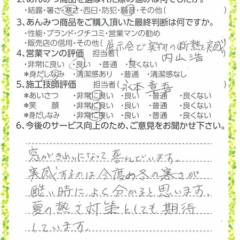 ・結露・暑さ・寒さ・西日・防犯・
3.あんみつ商品をご購入頂いた最終判断は何ですか。
・性能・ブランド・クチコミ・営業マンの勧め
・販売店の信用・その他(展示会で実物の断熱実感)
4.営業マンの評価 担当者( 内山 浩 )
・非常に良い ・良い ・普通 ・良くない
＊身だしなみ ・清潔感あり ・普通 ・清潔感なし
5.施工技師評価 担当者(
＊あいさつ ・非常に良い ・良い ・普通 ・良くない
＊笑 顔 ・非常に良い ・良い ・普通 ・良くない
＊身だしなみ ・非常に良い ・良い ・普通 ・良くない
6.今後のサービス向上のため、ご意見をお聞かせ下さい。
窓がきれいになって喜んでいます。
実感するのは今度の冬の寒さが
酷い時によく分かると思います。
夏の熱さ対策としても期待
しています。